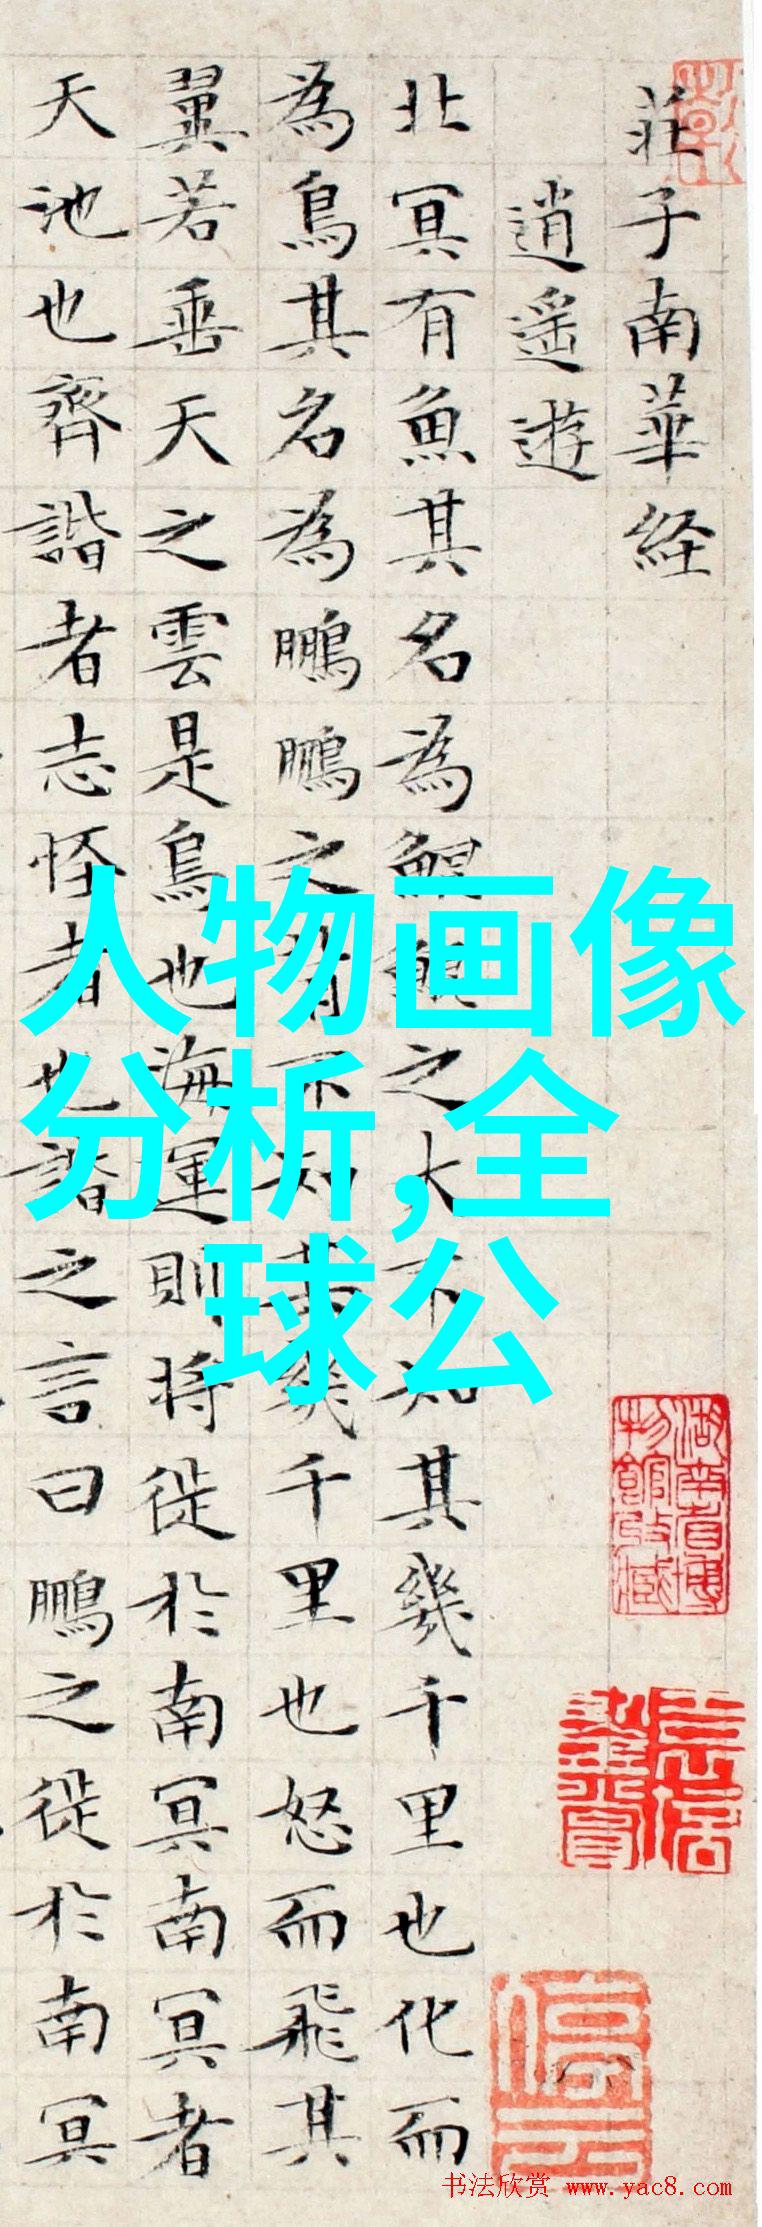 莊子南華経
逍遥遊
北冥有魚其名為鯤鯤之大不知其幾千里也化而
為鳥其名為鵬鵬之背不知其幾千里也怒而飛其
翼若垂天之雲是鳥也海運則将徙於南冥南冥者
天池也齊諧者志怪者也諧之言曰鵬之徙於南冥
人物画像
分析,全
球公
湖南省博
物館收藏
停云
书法欣赏 www.yac8.com